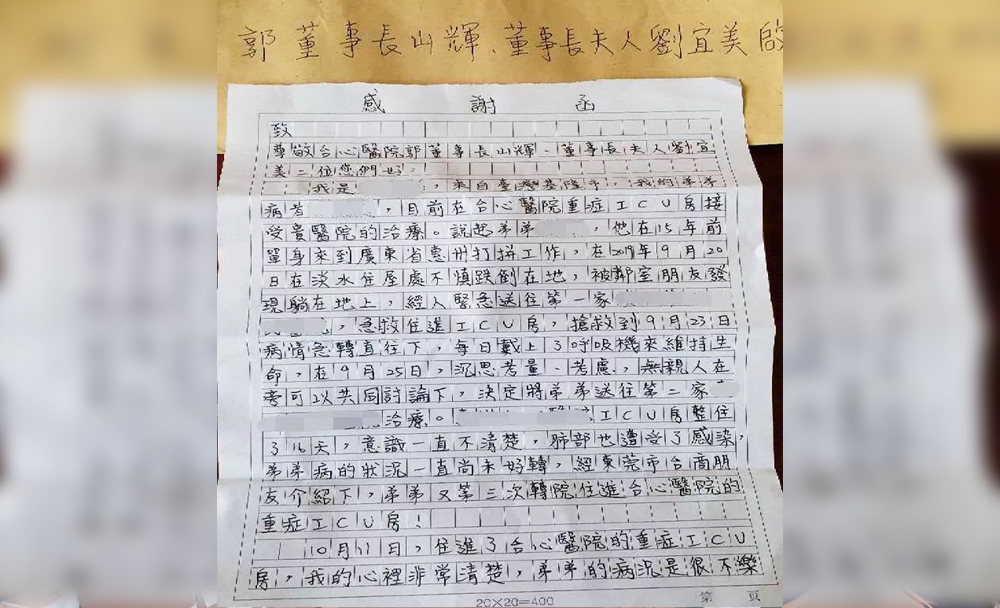 郭董事長山輝、董事長夫人劉宜美啟
感謝函
致
尊敬台心醫院郭董事長山輝、董事長夫人劉宜
美二位您們好,
我是,來自臺灣基隆市,我的弟弟
病者,目前在台心醫院重症ICU房接
受貴醫院的治療。說起弟弟,他在15年前
單身來到廣東省惠州打拼工作,在2019年9月20
日在淡水住屋處不慎跌倒在地,被鄰室朋友發
現躺在地上,經人緊急送往第一家
,急救住進ICU房,搶救到9月23日
病情急轉直往下,每日戴上了呼吸機來維持生
命,在9月25日,沉思考量、考慮,無親人在
旁可以共同討論下,決定將弟弟送往第二家
治療。ICU房整住
了16天,意識一直不清楚,肺部也遭受了感染,
弟弟病的狀況一直尚未好轉,經東莞市台商朋
友介紹下,弟弟又第三次轉院住進台心醫院的
重症ICU房、
10月11日,住進了台心醫院的重症ICU
房,我的心裡非常清楚,弟弟的病況是很不樂
20×20=400
第 頁